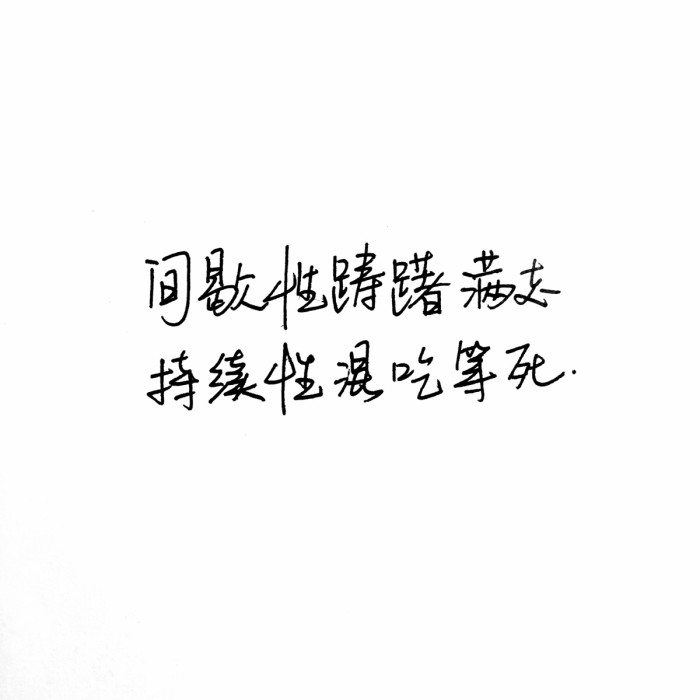 间歇性踌躇满志
持续性混吃等死.